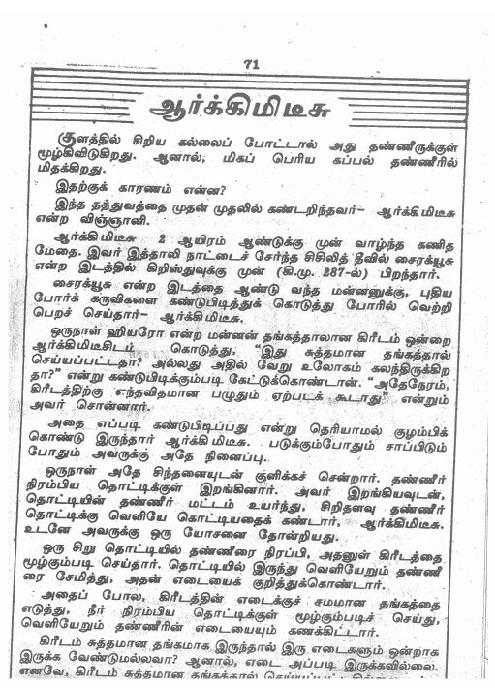 71
ஆர்க்கிமிடீசு
குளத்தில் சிறிய கல்லைப் போட்டால் அது தண்ணீருக்குள்
மூழ்கிவிடுகிறது. ஆனால், மிகப் பெரிய கப்பல் தண்ணீரில்
மிதக்கிறது.
இதற்குக் காரணம் என்ன?
இந்த தத்துவத்தை முதன் முதலில் கண்டறிந்தவர்— ஆர்க்கிமிடீசு
என்ற விஞ்ஞானி.
ஆர்க்கிமிடீசு 2 ஆயிரம் ஆண்டுக்கு முன் வாழ்ந்த கணித
மேதை. இவர் இத்தாலி நாட்டைச் சேர்ந்த சிசிலித் தீவில் சைரக்யூசு
என்ற இடத்தில் கிறிஸ்துவுக்கு முன் (கி.மு. 287-ல்) பிறந்தார்.
சைரக்யூசு என்ற இடத்தை ஆண்டு வந்த மன்னனுக்கு, புதிய
போர்க் கருவிகளை கண்டுபிடித்துக் கொடுத்து போரில் வெற்றி
பெறச் செய்தார்— ஆர்க்கிமிடீசு.
ஒருநாள் ஹியரோ என்ற மன்னன் தங்கத்தாலான கிரீடம் ஒன்றை
ஆர்க்கிமிடீசிடம் கொடுத்து, "இது சுத்தமான தங்கத்தால்
செய்யப்பட்டதா? அல்லது அதில் வேறு உலோகம் கலந்திருக்கிற
தா?" என்று கண்டுபிடிக்கும்படி கேட்டுக்கொண்டான். "அதேநேரம்,
கிரீடத்திற்கு எந்தவிதமான பழுதும் ஏற்படக் கூடாது" என்றும்
அவர் சொன்னார்.
அதை எப்படி கண்டுபிடிப்பது என்று தெரியாமல் குழம்பிக்
கொண்டு இருந்தார் ஆர்க்கிமிடீசு. படுக்கும்போதும் சாப்பிடும்
போதும் அவருக்கு அதே நினைப்பு.
ஒருநாள் அதே சிந்தனையுடன் குளிக்கச் சென்றார். தண்ணீர்
நிரம்பிய தொட்டிக்குள் இறங்கினார். அவர் இறங்கியவுடன்,
தொட்டியின் தண்ணீர் மட்டம் உயர்ந்து, சிறிதளவு தண்ணீர்
தொட்டிக்கு வெளியே கொட்டியதைக் கண்டார், ஆர்க்கிமிடீசு.
உடனே அவருக்கு ஒரு யோசனை தோன்றியது.
ஒரு சிறு தொட்டியில் தண்ணீரை நிரப்பி, அதனுள் கிரீடத்தை
மூழ்கும்படி செய்தார். தொட்டியில் இருந்து வெளியேறும் தண்ணீ
ரை சேமித்து, அதன் எடையைக் குறித்துக்கொண்டார்.
அதைப் போல, கிரீடத்தின் எடைக்குச் சமமான தங்கத்தை
எடுத்து, நீர் நிரம்பிய தொட்டிக்குள் மூழ்கும்படிச் செய்து,
வெளியேறும் தண்ணீரின் எடையையும் கணக்கிட்டார்.
கிரீடம் சுத்தமான தங்கமாக இருந்தால் இரு எடைகளும் ஒன்றாக
இருக்க வேண்டுமல்லவா? ஆனால், எடை அப்படி இருக்கவில்லை.
எனவே, கிரீடம் சுத்தமான தங்கத்தால்